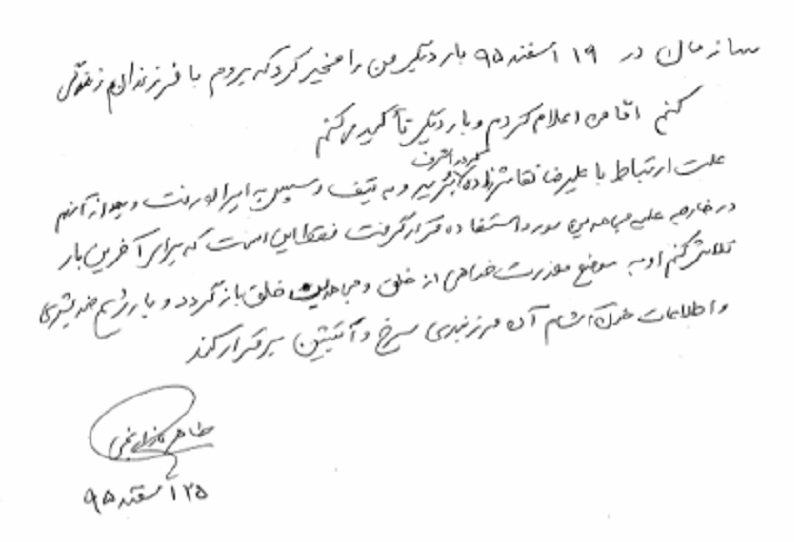 سازمان در ۱۹ اسفند ۹۵ بار دیگر من را مخیر کرد که بروم با فرزندانم زندگی
کنم اما من اعلام کردم و بار دیگر تأکید می‌کنم
که در اشرف
علت ارتباط با علیرضا نقاش‌زاده و به تیف و سپس به ایران رفت و بعد از آنهم
در خارجه علیه مجاهدین مورد استفاده قرار گرفت فقط این است که برای آخرین بار
تلاش کنم او به موضع معذرت خواهی از خلق و مجاهدین خلق باز گردد و با رژیم ضد بشری
و اطلاعات خون آشام آن مرزبندی سرخ و آتشین برقرار کند
۲۵ اسفند ۹۵